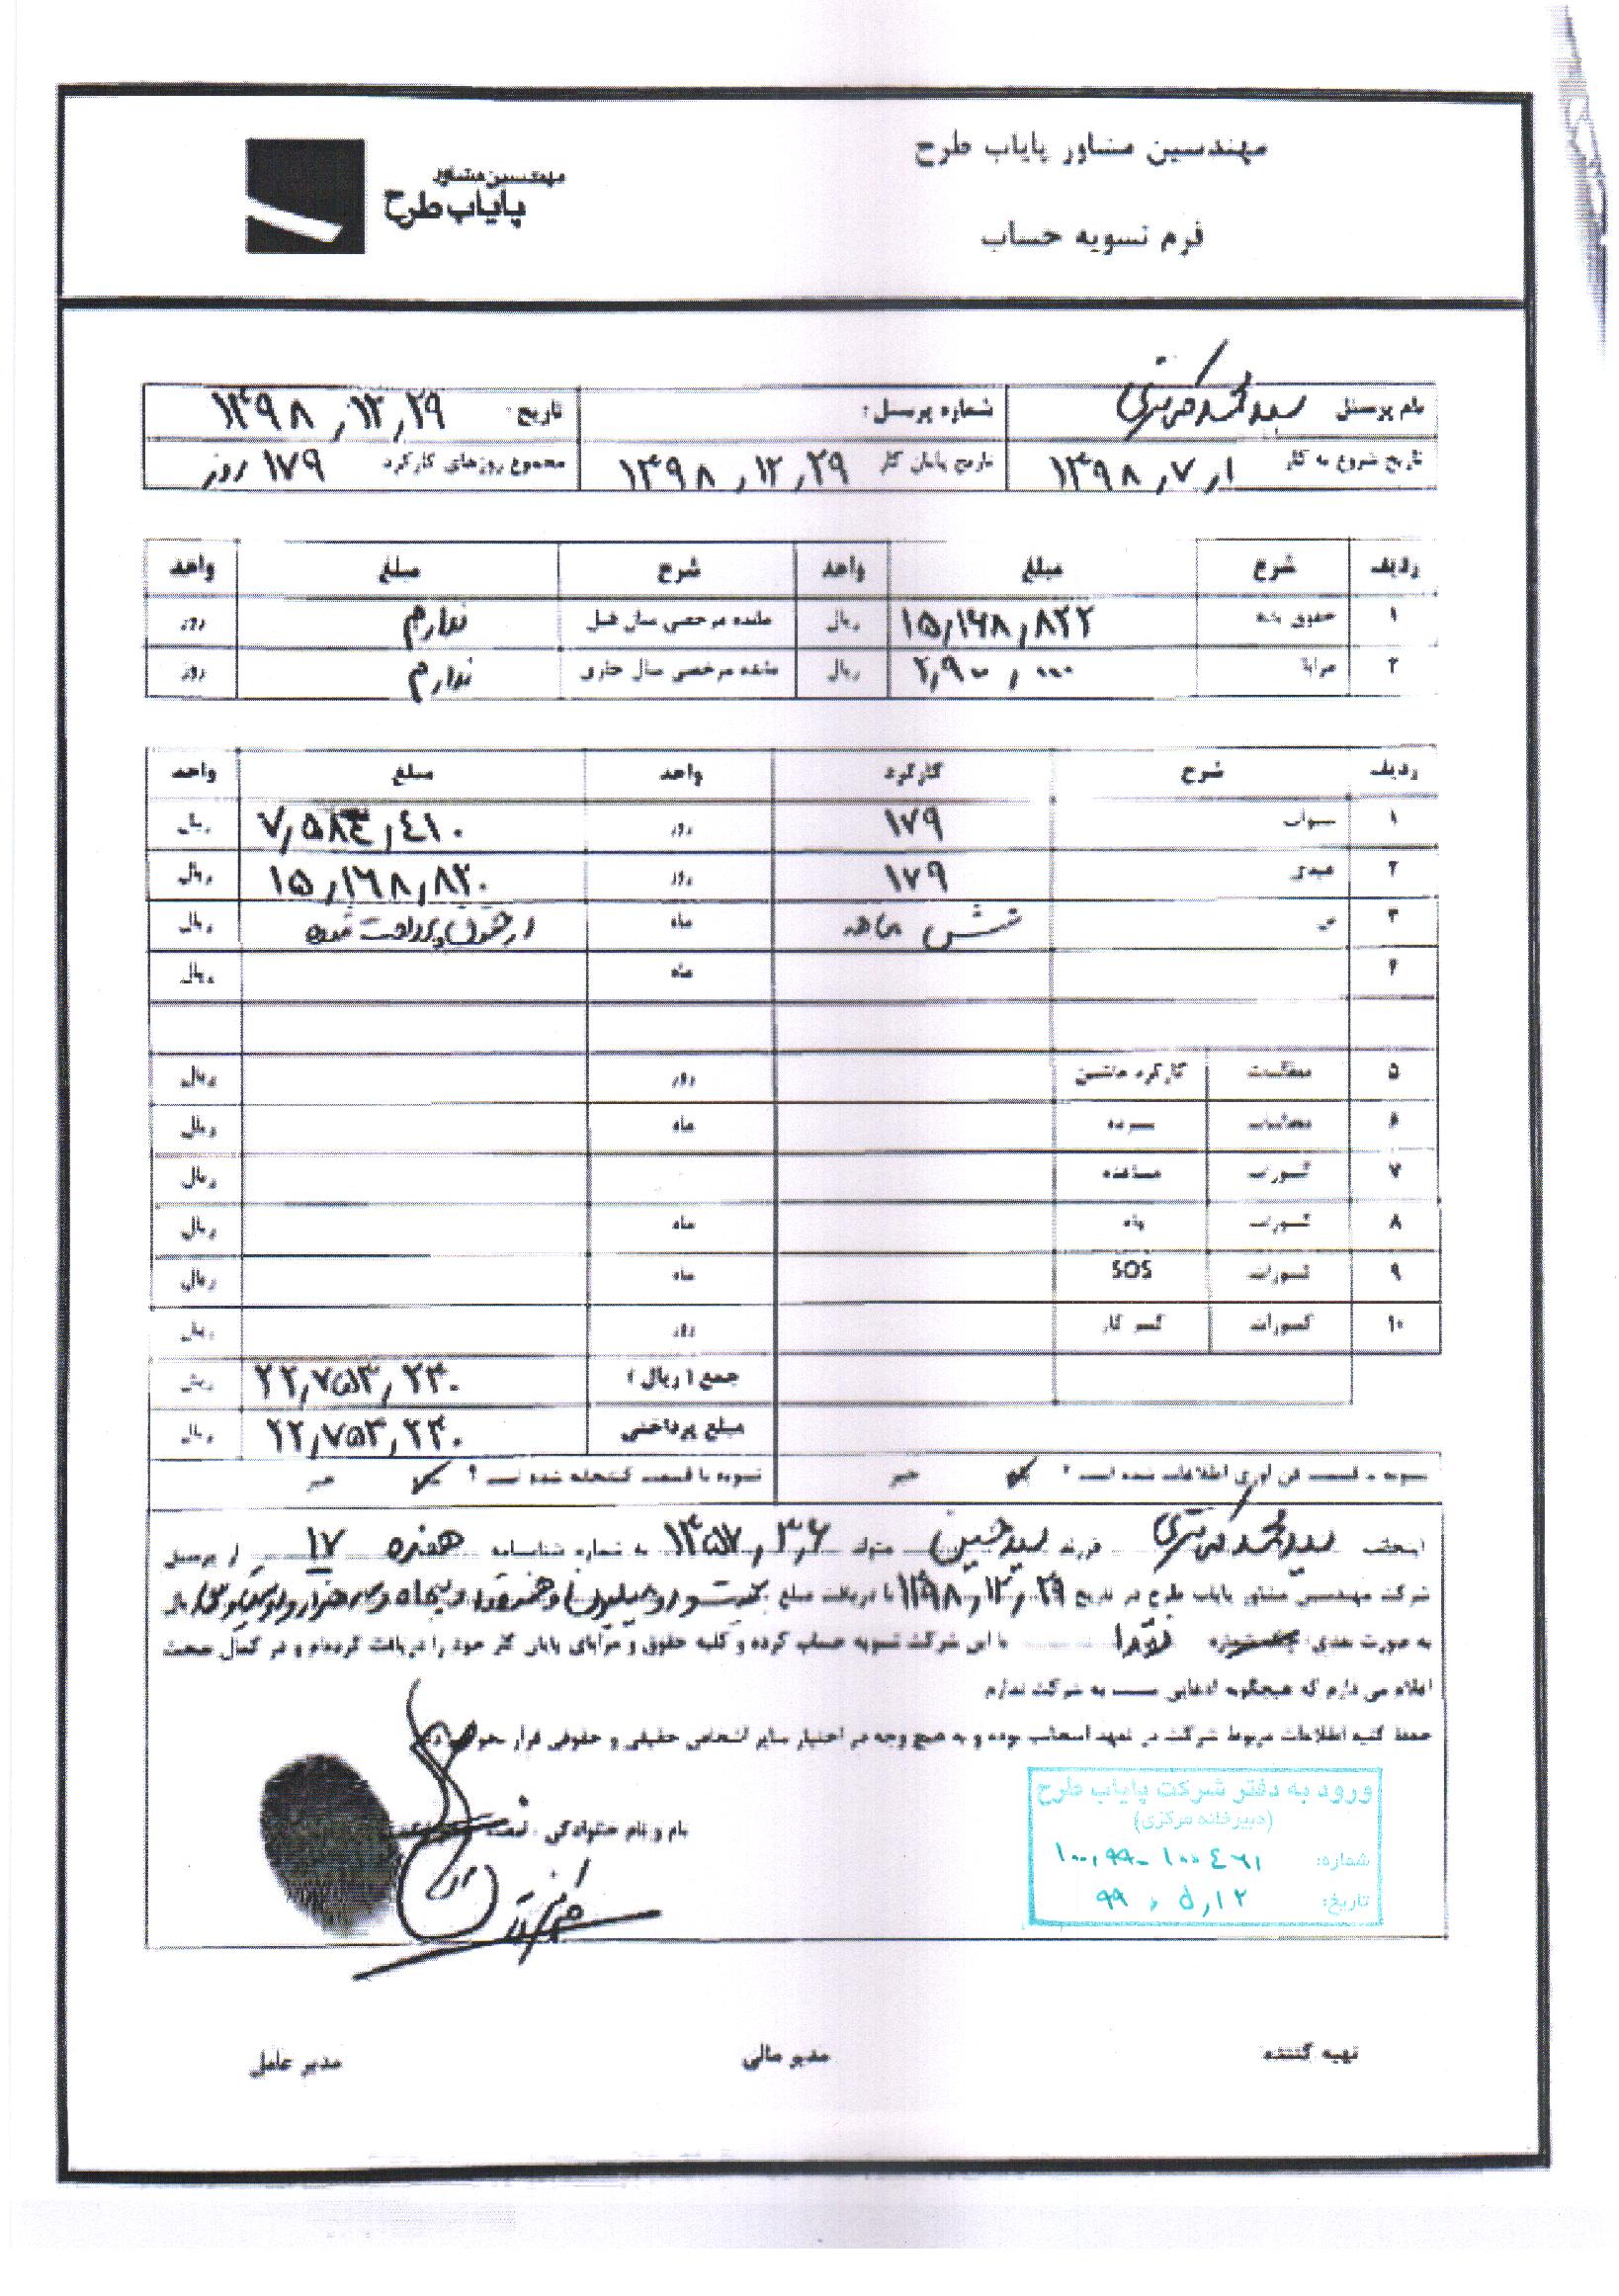 مهندسین مشاور پایاب طرح
فرم تسویه حساب
مهندسین مشاور
پایاب طرح
نام پرسنل سید محمد شماره پرسنل: تاریخ: ۱۳۹۸,۱۲,۲۹
تاریخ شروع به کار ۱۳۹۸,۷,۱ تاریخ پایان کار ۱۳۹۸,۱۲,۲۹ مجموع روزهای کارکرد ۱۷۹ روز
ردیف شرح مبلغ واحد شرح مبلغ واحد
۱ حقوق پایه ۱۵,۱۶۸,۸۲۲ ریال مانده مرخصی سال قبل ندارم روز
۲ مزایا ۲,۹۰۰,۰۰۰ ریال مانده مرخصی سال جاری ندارم روز
ردیف شرح کارکرد واحد مبلغ واحد
۱ سنوات ۱۷۹ روز ۷,۵۸۴,۴۱۰ ریال
۲ عیدی ۱۷۹ روز ۱۵,۱۶۸,۸۲۰ ریال
۳ شش ماهه ماه از حقوق پرداخت شده ریال
۴ ماه ریال
۵ مطالبات کارکرد ماشین روز ریال
۶ مطالبات سپرده ماه ریال
۷ کسورات مساعده ریال
۸ کسورات وام ماه ریال
۹ کسورات SOS ماه ریال
۱۰ کسورات کسر کار روز ریال
جمع (ریال) ۲۲,۷۵۳,۲۳۰ ریال
مبلغ پرداختی ۲۲,۷۵۳,۲۳۰ ریال
تسویه با قسمت فن آوری اطلاعات شده است ؟ بلی خیر تسویه با قسمت کتابخانه شده است ؟ بلی خیر
اینجانب سید محمد فرزند سید حسین متولد ۱۳۵۷,۳,۶ به شماره شناسنامه هفده ۱۷ از پرسنل
شرکت مهندسین مشاور پایاب طرح در تاریخ ۱۳۹۸,۱۲,۲۹ با دریافت مبلغ بیست و دو میلیون و هفتصد و پنجاه و سه هزار و دویست و سی ریال
به صورت نقدی با این شرکت تسویه حساب کرده و کلیه حقوق و مزایای پایان کار خود را دریافت کرده‌ام و در کمال صحت
اعلام می دارم که هیچگونه ادعایی نسبت به شرکت ندارم
حفظ کلیه اطلاعات مربوط شرکت در تعهد اینجانب بوده و به هیچ وجه در اختیار سایر اشخاص حقیقی و حقوقی قرار نخواهم داد
نام و نام خانوادگی
ورود به دفتر شرکت پایاب طرح
(دبیرخانه مرکزی)
شماره: ۱۰۰,۹۹-۱۰۰۴۶۱
تاریخ: ۹۹,۵,۱۲
تهیه کننده مدیر مالی مدیر عامل